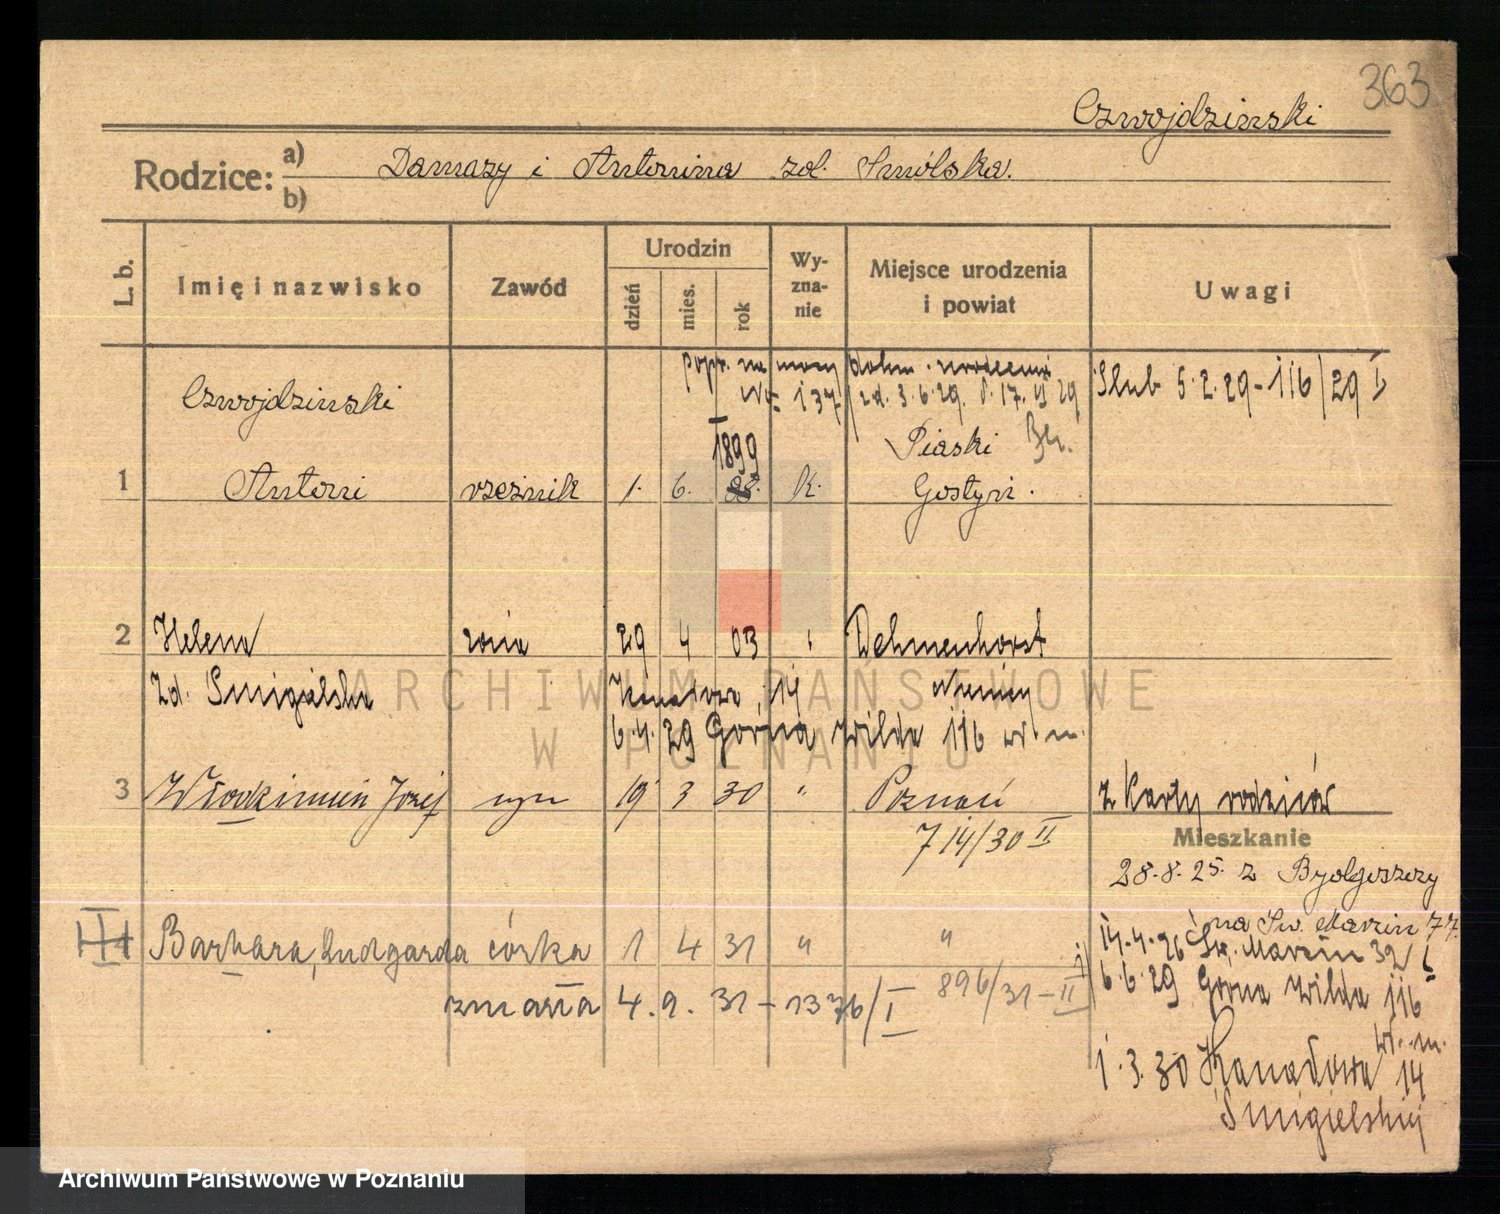 363
Czwojdziński
Rodzice: a) Damazy i Antonina zd. Smólska.
b)
L. b. Imię i nazwisko Zawód Urodzin Wy-zna-nie Miejsce urodzenia i powiat Uwagi
dzień mies. rok
popr. na mocy dokum. urodzenia
No 137/ zd. 3.6.29.
Ślub 5.2.29-116/29 I
Czwojdziński
1899
Piaski
1 Antoni rzeźnik 1. 6. 98. k. Gostyń.
2 Helena żona 29 4 03 " Delmenhorst
zd. Smigielska Kanałowa 14 Niemcy
6.4.29 Górna Wilda 116 wł. m.
3 Włodzimierz Józef syn 19 3 30 " Poznań z karty rodziców
714/30 II
Mieszkanie
28.8.25. z Bydgoszczy
na Św. Marcin 77.
III Barbara, Ludgarda córka 1 4 31 " "
14.4.26 Św. Marcin 32
896/31-II
6.6.29 Górna Wilda 116
zmarła 4.9.31-1376/I
wł. m.
1.3.30 Kanałowa 14
Smigielskiej
ARCHIWUM PAŃSTWOWE
W POZNANIU
Archiwum Państwowe w Poznaniu